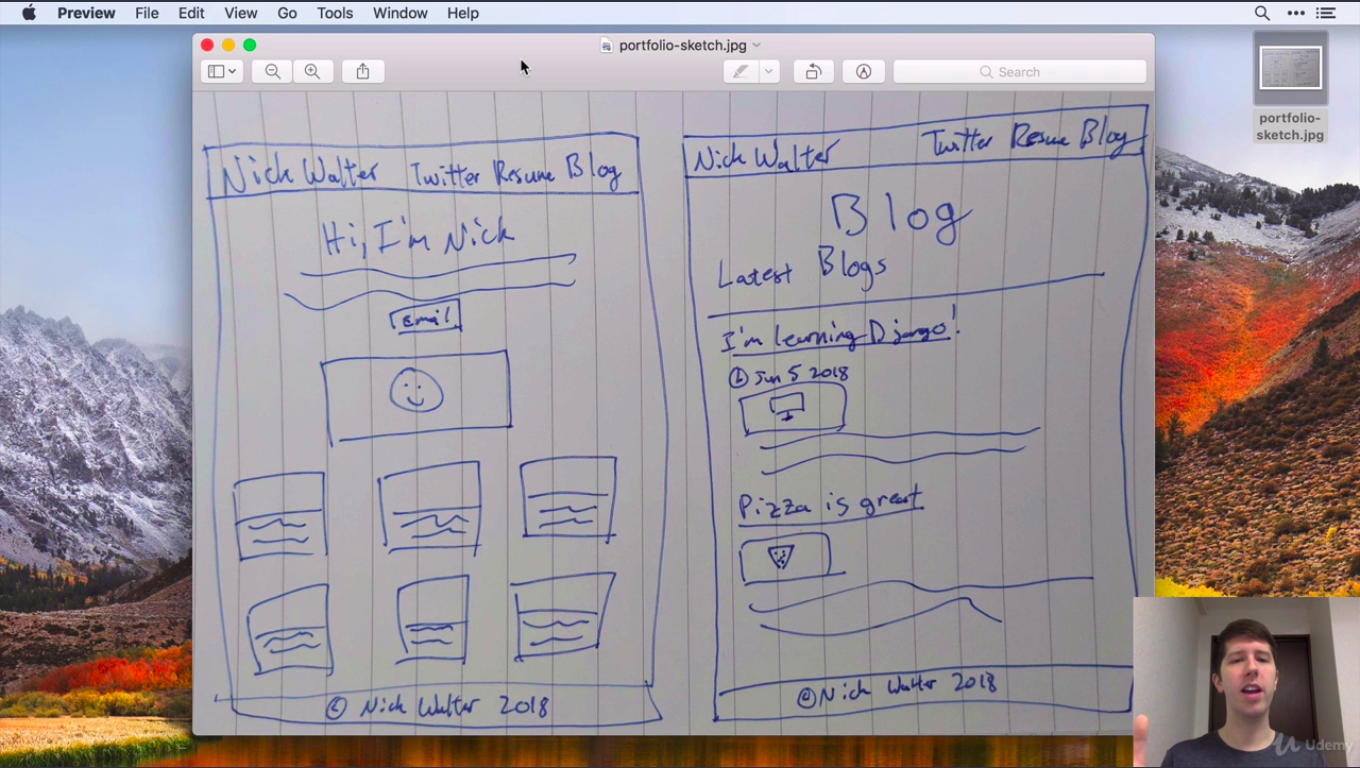 Preview File Edit View Go Tools Window Help
portfolio-sketch.jpg
Search
portfolio-
sketch.jpg
Nick Walter Twitter Resume Blog
Hi, I'm Nick
Email
© Nick Walter 2018
Nick Walter Twitter Resume Blog
Blog
Latest Blogs
I'm learning Django!
Jun 5 2018
Pizza is great
© Nick Walter 2018
Udemy